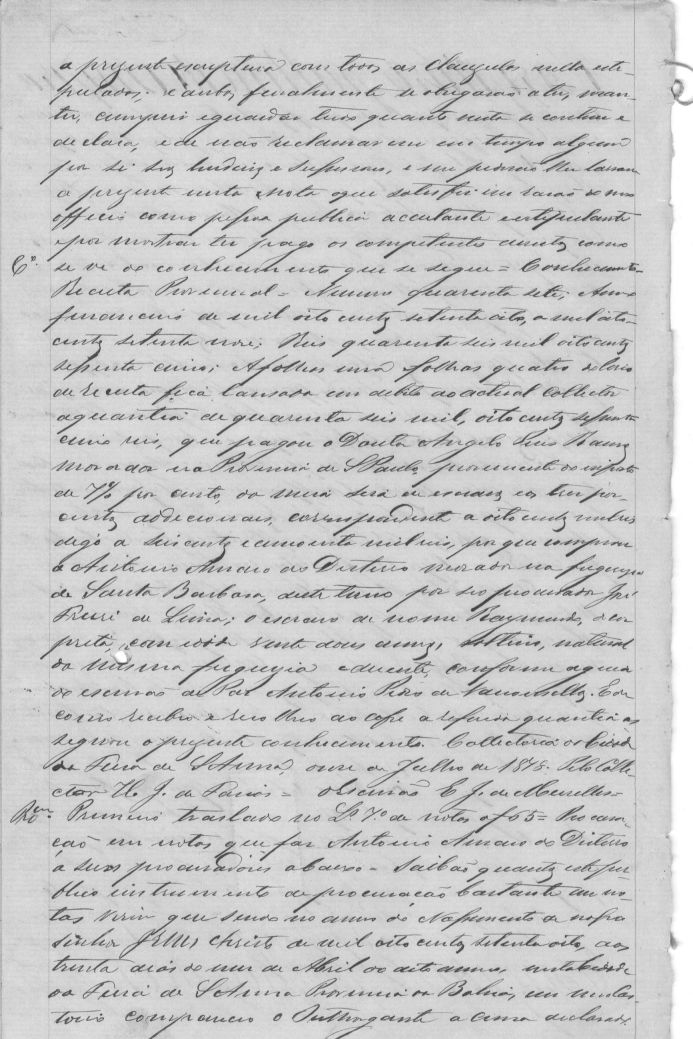 a prezente escriptura com todas as clauzulas nella esti-
puladas; e ambos finalmente se obrigarão a ter, man-
ter, cumprir e guardar tudo quanto nesta se contem e
declara, e de não reclamarem em tempo algum
por si seos herdeiros e sucessores, e me pedirão lhes lavrasse
a prezente nesta Nota o que satisfiz em razão de meo
officio como pessoa publica aceitante e estipulante
e por mostrar ter pago os competentes direitos como
Co.
se ve do conhecimento que se segue = Conhecimento
Receita Provincial = Numero quarenta sete; Anno
financeiro de mil oito centos setenta oito, a mil oito
centos setenta nove; Reis quarenta seis mil oito centos
sessenta cinco; A folhas uma folhas quatro do livro
de receita fica lançada em debito ao actual collector
a quantia de quarenta seis mil, oito centos sessenta
cinco reis, que pagou o Doutor Angelo Pires Ramos
morador na Provincia de S Paulo, proveniente do imposto
de 7% por cento, da meia siza de escravos e os tres por
centos addecionais, correspondente a oito centos mil reis
digo a seis centos e cincoenta mil reis, por que comprou
a Antonio Amaro do Disterro morador na freguezia
de Santa Barbara, deste termo por seo procurador José
Freire de Lima; o escravo de nome Raymundo, de cor
preta, com idade vinte dous annos, solteiro, natural
da mesma freguezia e doente, conforme a guia
do escrivão de Paz Antonio Pires de Vasconcellos. E de
como recebeo e recolheo ao cofre a referida quantia as
segnou o prezente conhecimento. Collectoria da Cidade
da Feira de S Anna, onze de Julho de 1878. Pelo Colle-
ctor M. J. de Farias = O Escrivão C J. de Meirelles =
Pr.om
Primeiro traslado no L.º 7º de notas a f 65 = Procura-
ção em notas que faz Antonio Amaro do Disterro
a seos procuradores abaixo = Saibão quantos este pu-
blico instrumento de procuração bastante em no-
tas virem que sendo no anno do Nascimento de nosso
Senhor Jesus Christo de mil oito centos setenta oito, aos
trinta dias do mez de Abril do dito anno, nesta Cidade
da Feira de S Anna Provincia da Bahia, em meo car-
torio compareceo o Outhorgante a cima declarado